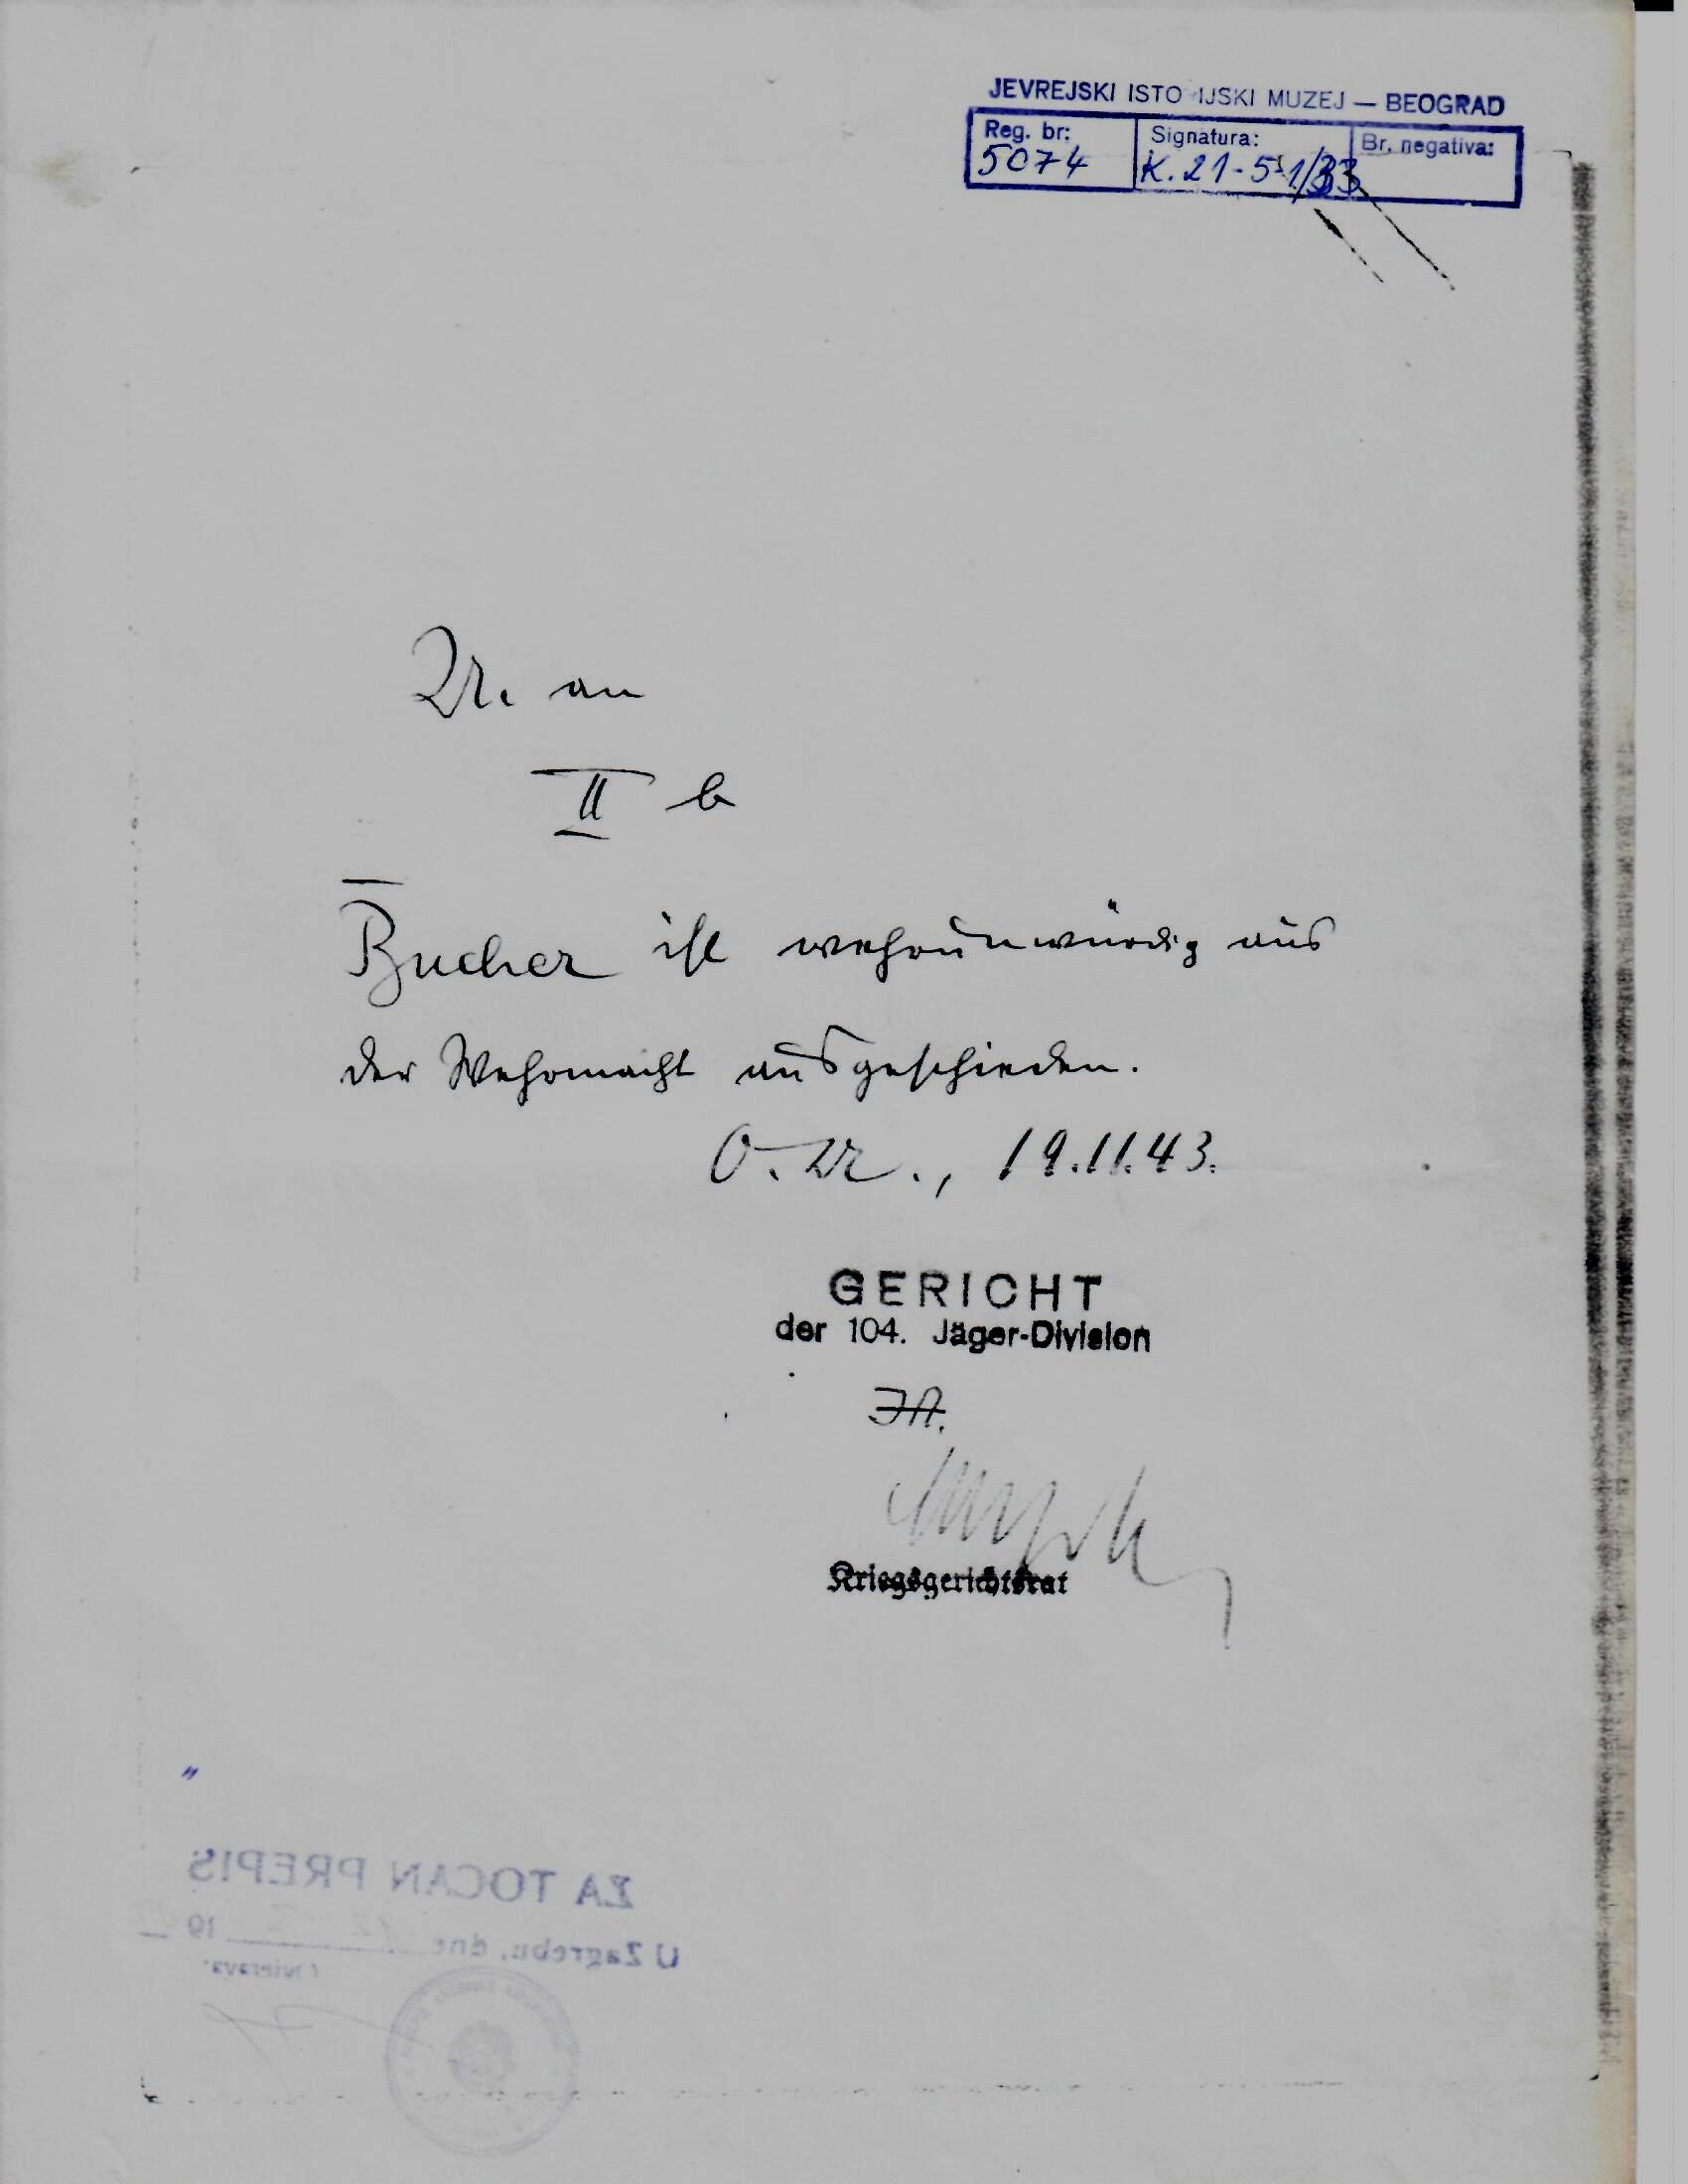 JEVREJSKI ISTO IJSKI MUZEJ — BEOGRAD
Reg. br: Signatura: Br. negativa:
5074 K. 21-5-1/33
U. an
II b
Bucher ist wehrunwürdig aus
der Wehrmacht ausgeschieden.
O.U., 19.11.43.
GERICHT
der 104. Jäger-Division
Kriegsgerichtsrat
ZA TOCAN PREPIS
U Zagrebu, dne 19